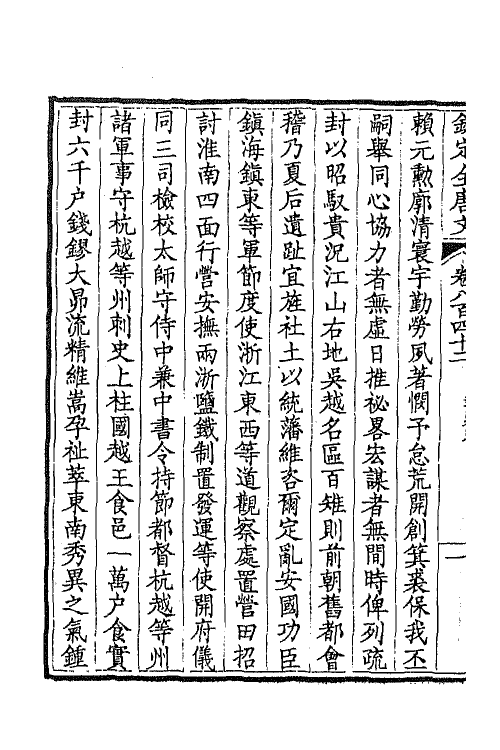 欽定全唐文 卷八百四十二
賴元勳廓清寰宇勤勞夙著憫予怠荒開創箕裘保我丕
嗣舉同心協力者無虛日推祕畧宏謀者無間時俾列疏
封以昭馭貴況江山右地吳越名區百雉則前朝舊都會
稽乃夏后遺趾宜旌社土以統藩維咨爾定亂安國功臣
鎮海鎮東等軍節度使浙江東西等道觀察處置營田招
討淮南四面行營安撫兩浙鹽鐵制置發運等使開府儀
同三司檢校太師守侍中兼中書令持節都督杭越等州
諸軍事守杭越等州刺史上柱國越王食邑一萬户食實
封六千户錢鏐大昴流精維嵩孕祉萃東南秀異之氣鍾